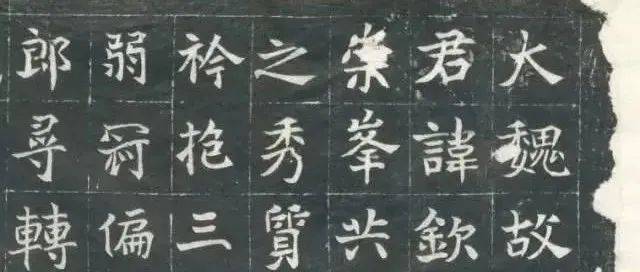 大魏故
君諱欽
崇峯共
之秀質
衿抱三
弱冠偏
郎尋轉